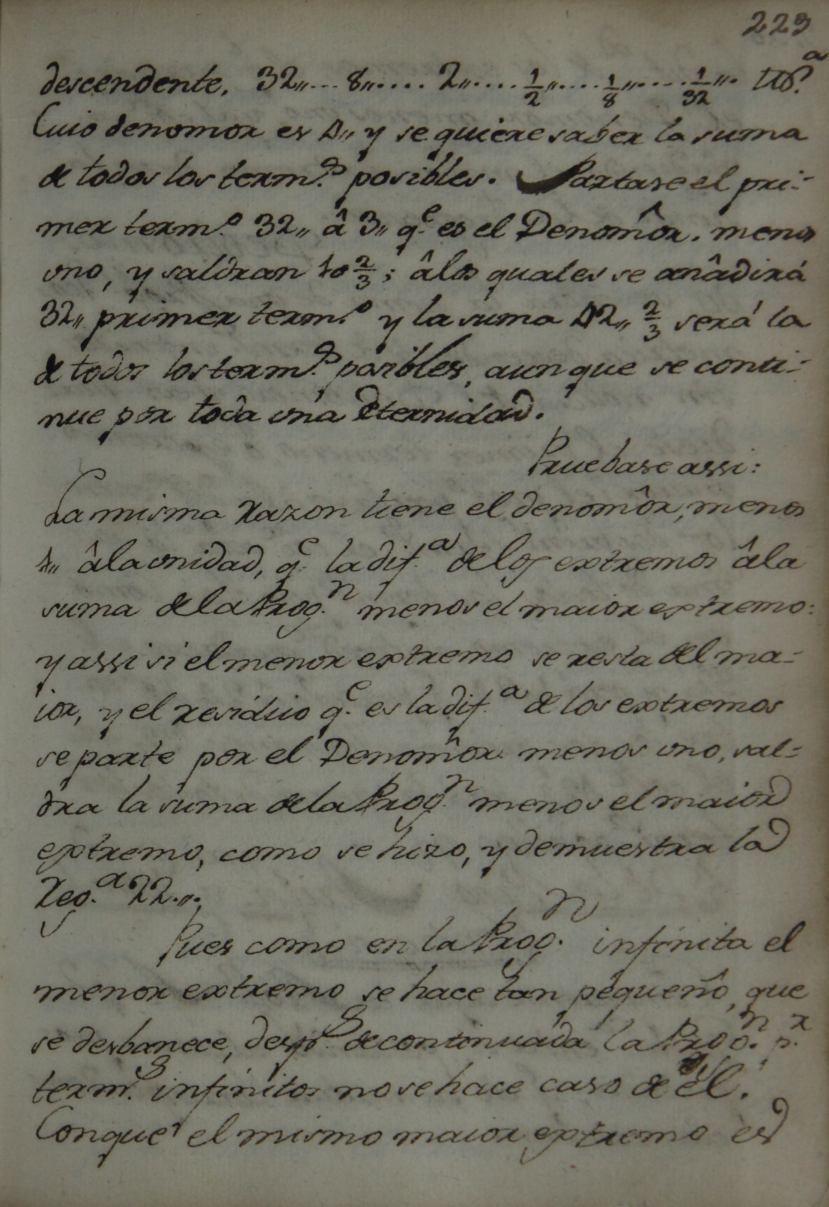 223
descendente. 32,,....8,,....2,,....1/2,,....1/8,,....1/32,,.
Cuio denomor es 4,, y se quiere saber la suma
de todos los term.s posibles. Partase el pri-
mer term.o 32,, â 3,, q.e es el Denom̂or. menos
uno, y saldran 10 2/3; âlos quales se anâdirá
32,, primer term.o y la suma 42,, 2/3 será la
de todos los term.s posibles, aunque se conti-
nue por toda una Eternidad.
Pruebase assi:
La misma Razon tiene el denom̂or, menos
1,, âla unidad, q.e la dif.a de los extremos âla
suma de la Prog.n menos el maior extremo:
y assi si el menor extremo se resta del ma-
ior, y el residuo q.e es la dif.a de los extremos
se parte por el Denom̂or menos uno, sal-
dra la suma de la Prog.n menos el maior
extremo, como se hizo, y demuestra la
Reg.a 22.,,.
Pues como en la Prog.n infinita el
menor extremo se hace tan pequeño, que
se desbanece, desp.s de continuada la Prog.n p.r
term.s infinitos no se hace caso de êl.
Conque el mismo maior extremo es